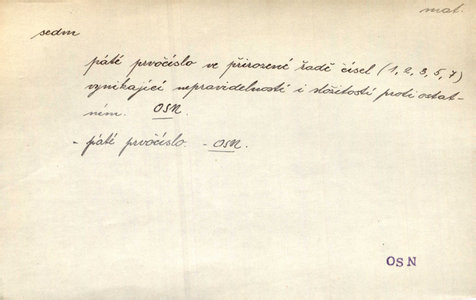 mat.
sedm
páté prvočíslo ve přirozené řadě čísel (1, 2, 3, 5, 7)
vznikající nepravidelností i složitostí proti ostat-
ném. OSN.
- páté prvočíslo. - OSN.
OSN